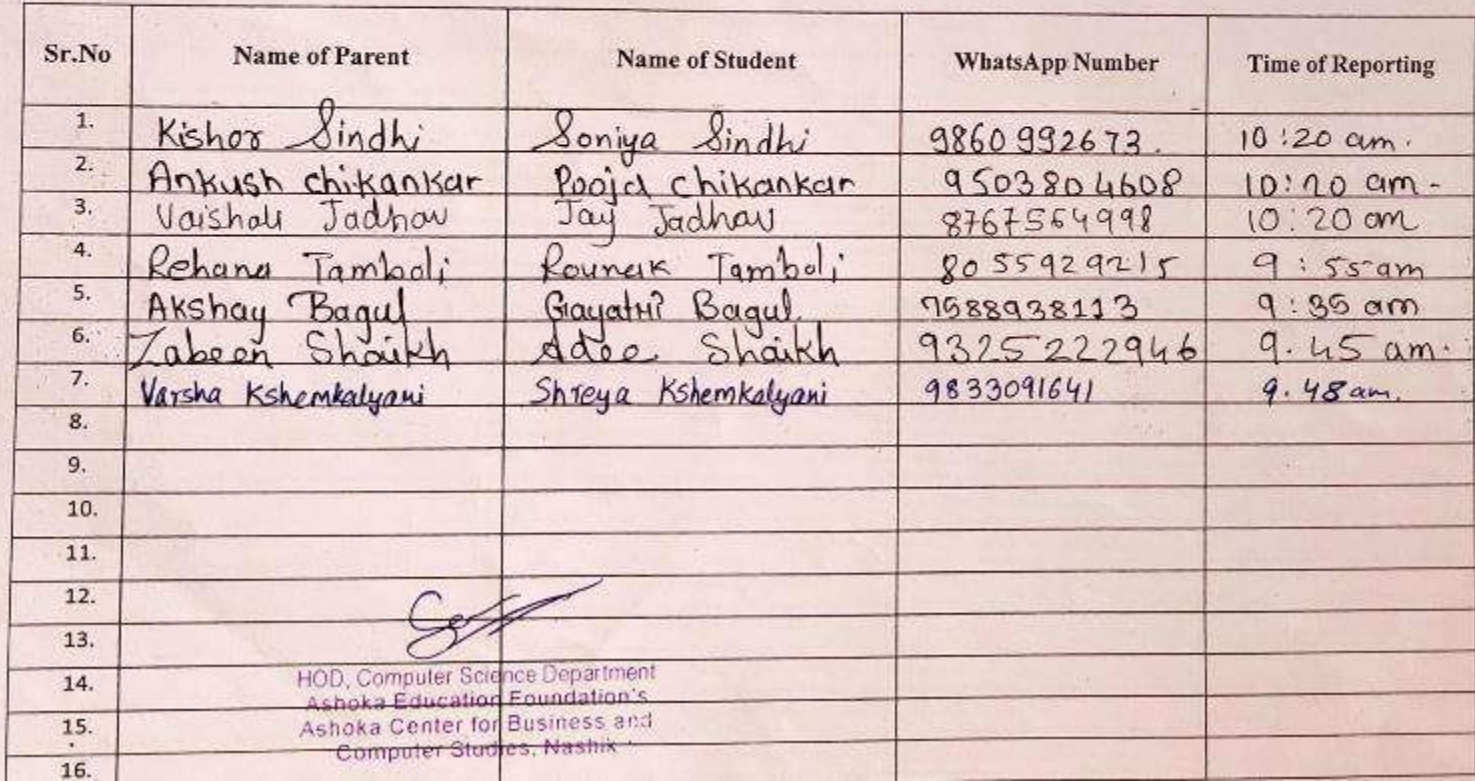 Sr.No Name of Parent Name of Student WhatsApp Number Time of Reporting
1. Kishor Sindhi Soniya Sindhi 9860992673. 10:20 am.
2. Ankush chikankar Pooja chikankar 9503804608 10:20 am-
3. Vaishali Jadhav Jay Jadhav 8767564998 10:20 am
4. Rehana Tamboli Rounak Tamboli 8055929215 9:55 am
5. Akshay Bagul Gayatri Bagul. 7588938113 9:35 am
6. Zabeen Shaikh Shaikh 9325222946 9.45 am.
7. Varsha Kshemkalyani Shreya Kshemkalyani 9833091641 9.48 am.
8.
9.
10.
11.
12.
13.
14. HOD, Computer Science Department
Ashoka Education Foundation's
15. Ashoka Center for Business and
Computer Studies, Nashik
16.